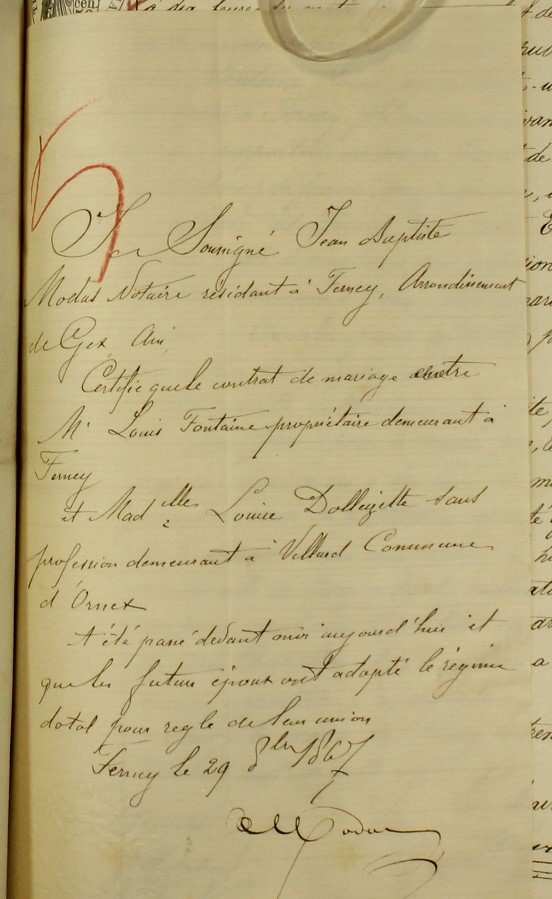 Je Soussigné Jean Baptiste
Modas Notaire résidant à Ferney, Arrondissement
de Gex Ain,
Certifie que le contrat de mariage entre
Mr Louis Fontaine propriétaire demeurant à
Ferney
et Madelle Louise Dollezette sans
profession demeurant à Villard Commune
d'Ornex
A été passé devant moi aujourd'hui et
que les futurs époux ont adopté le régime
dotal pour regle de leur union
Ferney le 29 8bre 1867